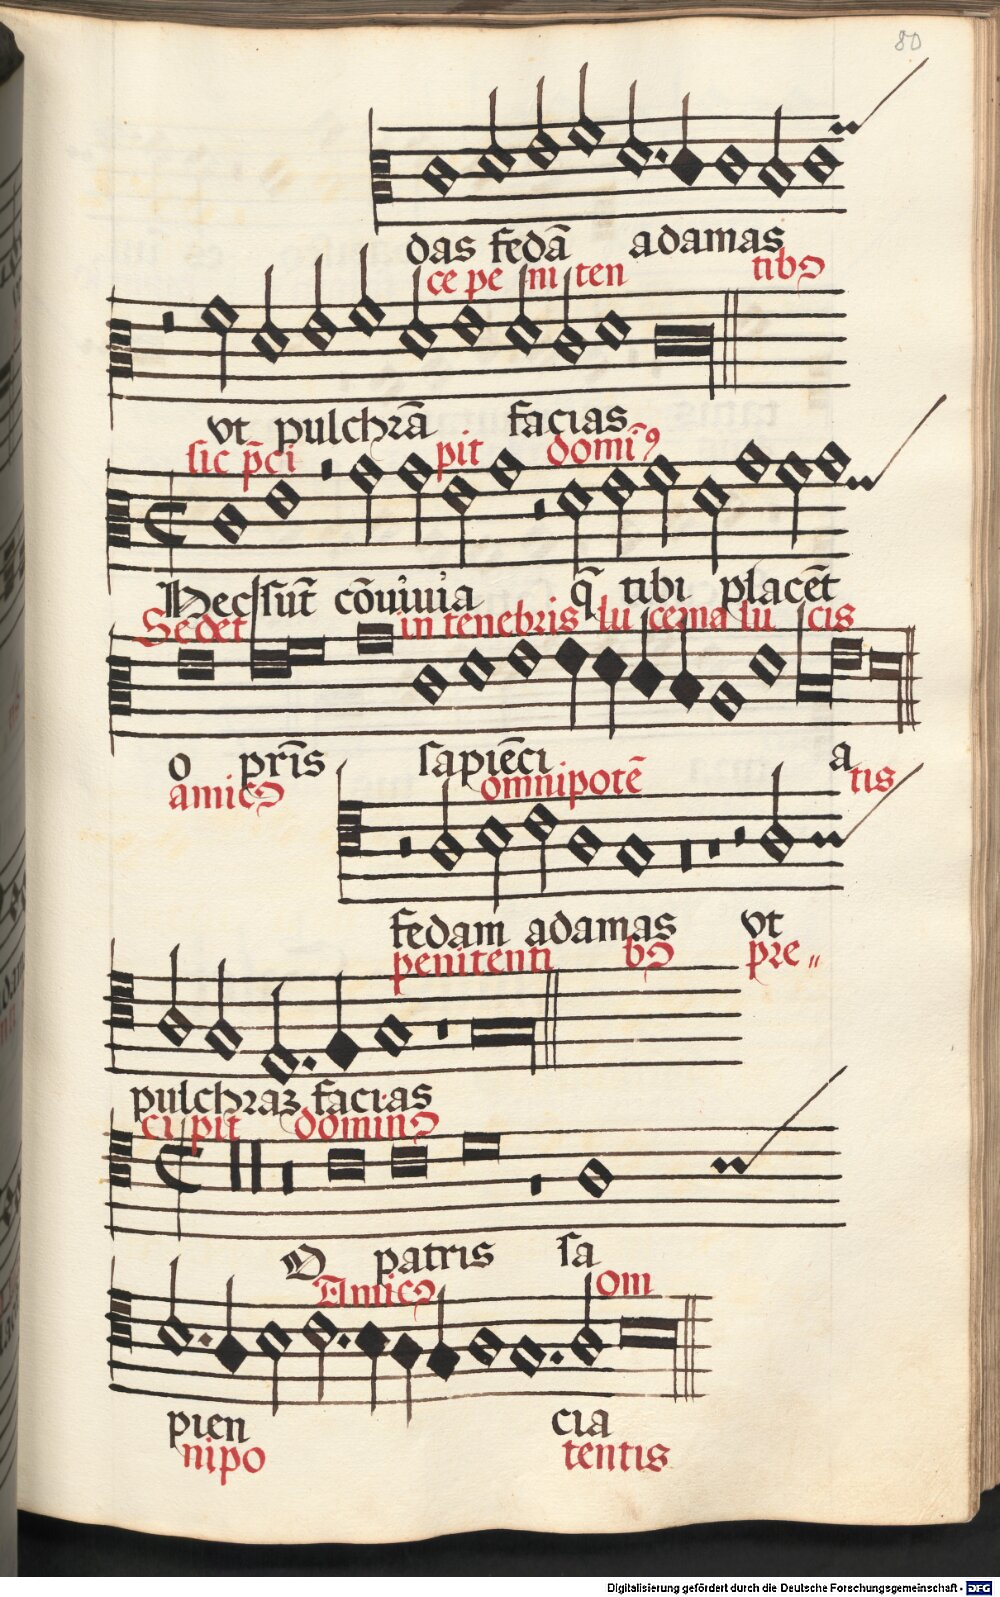 80
das fedā adamas
ce pe ni ten tibꝰ
vt pulchrā facias
sic p̄ci pit domīꝰ
Nec sūt cōuiuia q̄ tibi placēt
Sedet in tenebris lu cerna lu cis
o pr̄is sapiēci a
amicꝰ omnipotē tis
fedam adamas vt
penitenti bꝰ pre„
pulchraz facias
cipit dominꝰ
O patris sa
Amicꝰ om
pien cia
nipo tentis
Digitalisierung gefördert durch die Deutsche Forschungsgemeinschaft - DFG